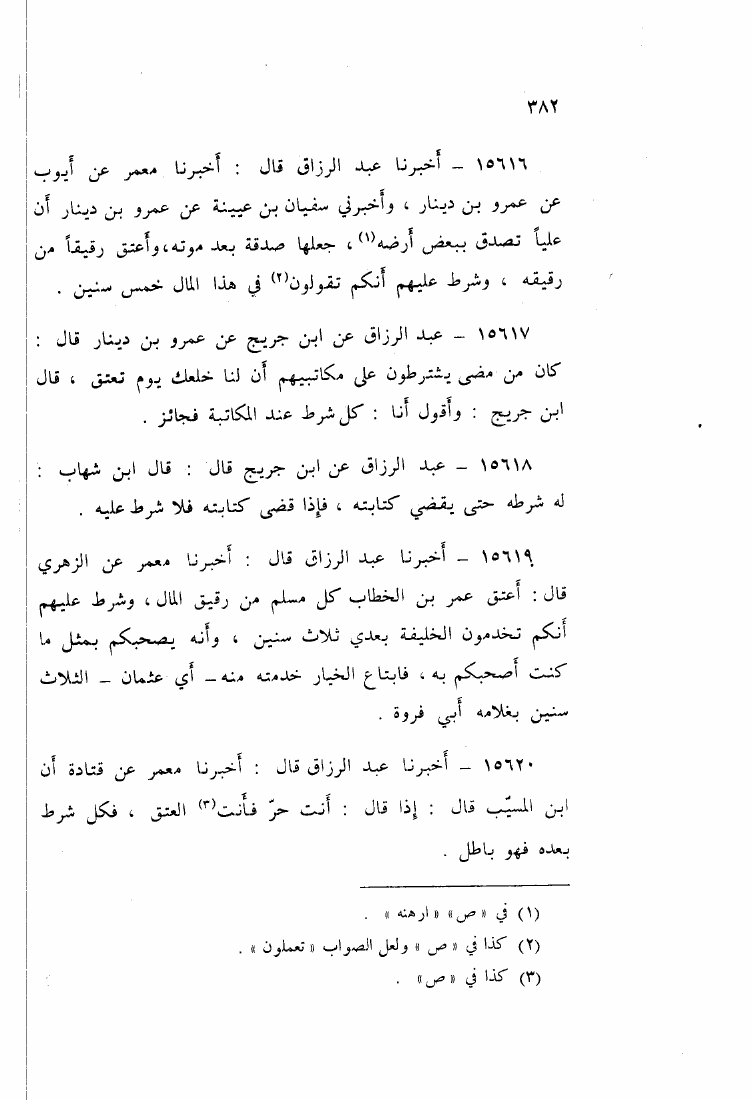 ٣٨٢
١٥٦١٦ – أخبرنا عبد الرزاق قال : أخبرنا معمر عن أيوب
عن عمرو بن دينار ، وأخبرني سفيان بن عيينة عن عمرو بن دينار أن
علياً تصدق ببعض أرضه(١) ، جعلها صدقة بعد موته، وأعتق رقيقاً من
رقيقه ، وشرط عليهم أنكم تقولون(٢) في هذا المال خمس سنين .
١٥٦١٧ – عبد الرزاق عن ابن جريج عن عمرو بن دينار قال :
كان من مضى يشترطون على مكاتبيهم أن لنا خلعك يوم تعتق ، قال
ابن جريج : وأقول أنا : كل شرط عند المكاتبة فجائز .
١٥٦١٨ – عبد الرزاق عن ابن جريج قال : قال ابن شهاب :
له شرطه حتى يقضي كتابته ، فإذا قضى كتابته فلا شرط عليه .
١٥٦١٩ – أخبرنا عبد الرزاق قال : أخبرنا معمر عن الزهري
قال : أعتق عمر بن الخطاب كل مسلم من رقيق المال ، وشرط عليهم
أنكم تخدمون الخليفة بعدي ثلاث سنين ، وأنه يصحبكم بمثل ما
كنت أصحبكم به ، فابتاع الخيار خدمته منه – أي عثمان – الثلاث
سنين بغلامه أبي فروة .
١٥٦٢٠ – أخبرنا عبد الرزاق قال : أخبرنا معمر عن قتادة أن
ابن المسيّب قال : إذا قال : أنت حرّ فأنت(٣) العتق ، فكل شرط
بعده فهو باطل .
(١) في «ص» «ارهنه» .
(٢) كذا في «ص» ولعل الصواب «تعملون» .
(٣) كذا في «ص» .